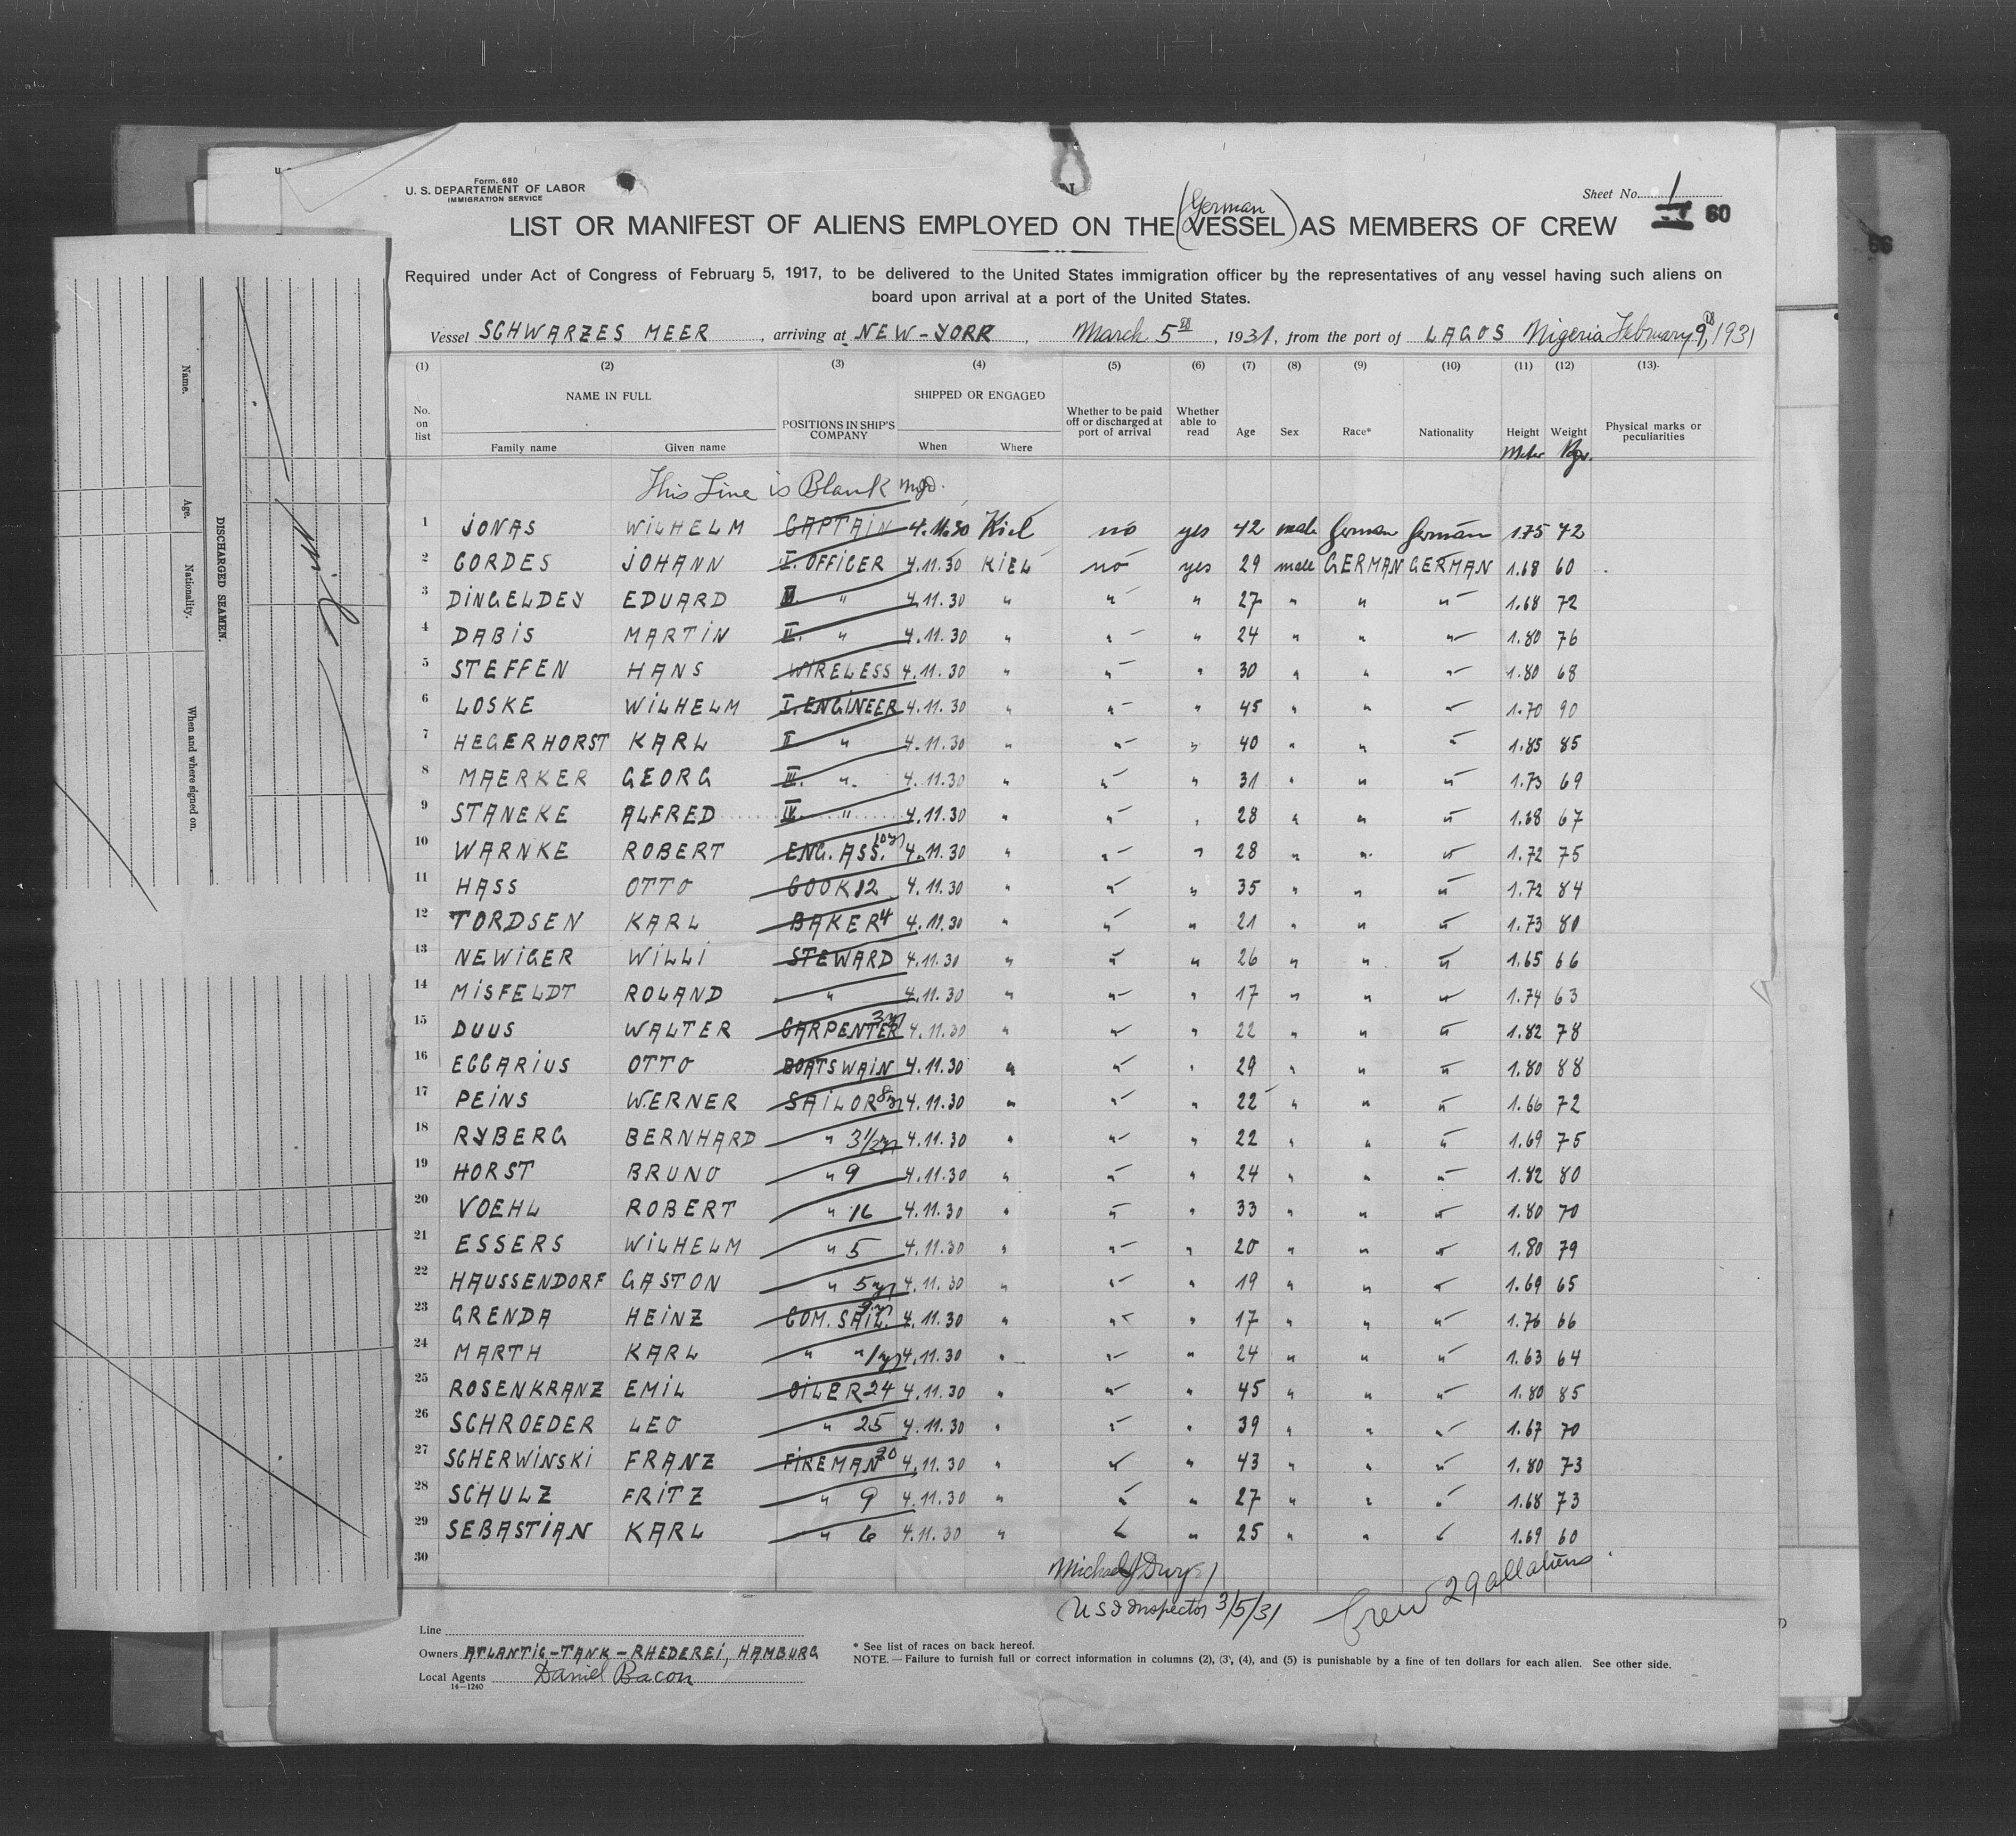 Form. 680
U. S. DEPARTEMENT OF LABOR
IMMIGRATION SERVICE
Sheet No. 1
60
66
LIST OR MANIFEST OF ALIENS EMPLOYED ON THE (German VESSEL) AS MEMBERS OF CREW
Required under Act of Congress of February 5, 1917, to be delivered to the United States immigration officer by the representatives of any vessel having such aliens on
board upon arrival at a port of the United States.
Vessel SCHWARZES MEER, arriving at NEW-YORK, March 5th, 1931, from the port of LAGOS Nigeria February 9th, 1931
(1) (2) (3) (4) (5) (6) (7) (8) (9) (10) (11) (12) (13)
No. on list NAME IN FULL Family name Given name POSITIONS IN SHIP'S COMPANY SHIPPED OR ENGAGED When Where Whether to be paid off or discharged at port of arrival Whether able to read Age Sex Race* Nationality Height Meter Weight Kgr. Physical marks or peculiarities
This Line is Blank
1 JONAS WILHELM CAPTAIN 4.11.30 Kiel no yes 42 male German German 1.75 72
2 GORDES JOHANN I. OFFICER 4.11.30 KIEL no yes 29 male GERMAN GERMAN 1.68 60
3 DINGELDEY EDUARD " 4.11.30 " " " 27 " " " 1.68 72
4 DABIS MARTIN II. " 4.11.30 " " " 24 " " " 1.80 76
5 STEFFEN HANS WIRELESS 4.11.30 " " " 30 " " " 1.80 68
6 LOSKE WILHELM I. ENGINEER 4.11.30 " " " 45 " " " 1.70 90
7 HEGERHORST KARL II " 4.11.30 " " " 40 " " " 1.85 85
8 MAERKER GEORG III. " 4.11.30 " " " 31 " " " 1.73 69
9 STANEKE ALFRED IV. " 4.11.30 " " " 28 " " " 1.68 67
10 WARNKE ROBERT ENG. ASS. 10y 4.11.30 " " " 28 " " " 1.72 75
11 HASS OTTO COOK 12 4.11.30 " " " 35 " " " 1.72 84
12 TORDSEN KARL BAKER 4 4.11.30 " " " 21 " " " 1.73 80
13 NEWIGER WILLI STEWARD 4.11.30 " " " 26 " " " 1.65 66
14 MISFELDT ROLAND " 4.11.30 " " " 17 " " " 1.74 63
15 DUUS WALTER CARPENTER 3y 4.11.30 " " " 22 " " " 1.82 78
16 EGGARIUS OTTO BOATSWAIN 4.11.30 " " " 29 " " " 1.80 88
17 PEINS WERNER SAILOR 8y 4.11.30 " " " 22 " " " 1.66 72
18 RYBERG BERNHARD " 3½y 4.11.30 " " " 22 " " " 1.69 75
19 HORST BRUNO " 9 4.11.30 " " " 24 " " " 1.82 80
20 VOEHL ROBERT " 16 4.11.30 " " " 33 " " " 1.80 70
21 ESSERS WILHELM " 5 4.11.30 " " " 20 " " " 1.80 79
22 HAUSSENDORF GASTON " 5y 4.11.30 " " " 19 " " " 1.69 65
23 GRENDA HEINZ COM. SAIL. 4.11.30 " " " 17 " " " 1.76 66
24 MARTH KARL " " 1y 4.11.30 " " " 24 " " " 1.63 64
25 ROSENKRANZ EMIL OILER 24 4.11.30 " " " 45 " " " 1.80 85
26 SCHROEDER LEO " 25 4.11.30 " " " 39 " " " 1.67 70
27 SCHERWINSKI FRANZ FIREMAN 20 4.11.30 " " " 43 " " " 1.80 73
28 SCHULZ FRITZ " 9 4.11.30 " " " 27 " " " 1.68 73
29 SEBASTIAN KARL " 6 4.11.30 " " 25 " " 1.69 60
30
Michael J Dwyer
U S I Inspector 3/5/31
Crew 29 all aliens
Line
Owners ATLANTIC-TANK-RHEDEREI, HAMBURG
Local Agents Daniel Bacon
14—1240
* See list of races on back hereof.
NOTE. — Failure to furnish full or correct information in columns (2), (3), (4), and (5) is punishable by a fine of ten dollars for each alien. See other side.
DISCHARGED SEAMEN.
Name.
Age.
Nationality.
When and where signed on.